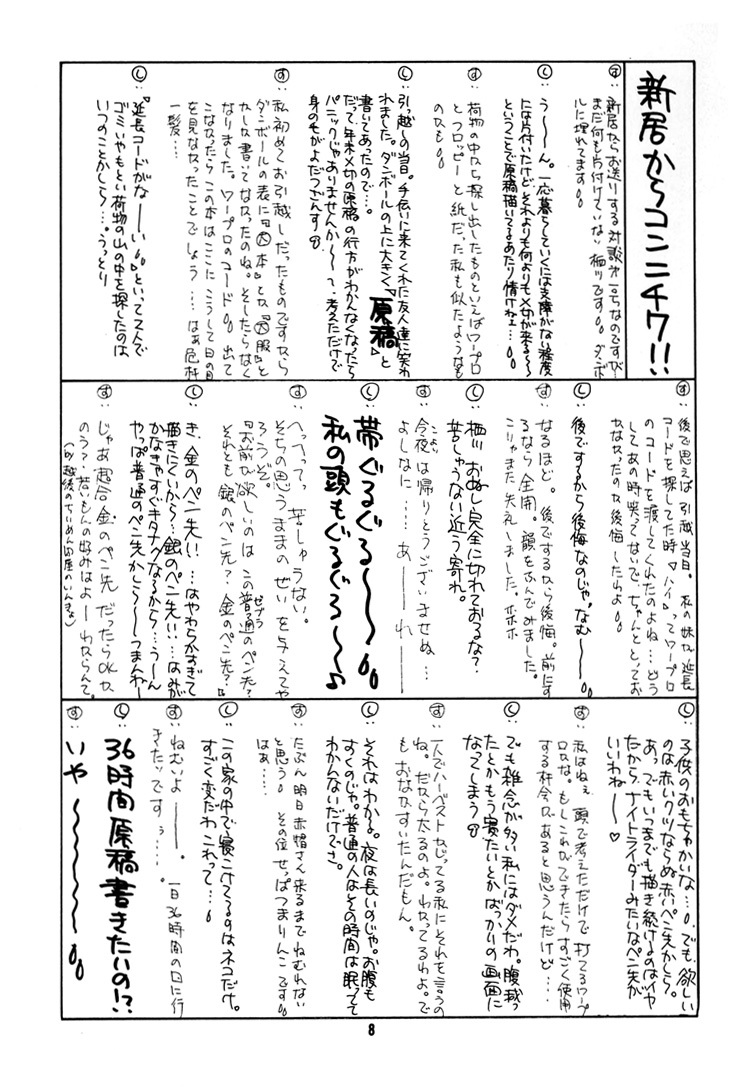 新居からコンニチワ!!
す：新居からお送りする対談第一号なのですが
まだ何も片付けていない栖川ですの。ダンボー
ルに埋れてますの。
し：う～～ん。一応暮らしていくには支障がない程度
には片付いたけどそれよりも何よりも〆切が来る～～
ということで原稿描いてるあたり情けねェ…。
す：荷物の中から探し出したものといえばワープロ
とフロッピーと紙だた私も似たようなも
のかも。
し：引っ越しの当日。手伝いに来てくれた友人達に笑わ
れました。ダンボールの上に大きく『原稿』と
書いてあったので…。
だって年末〆切の原稿の行方がわかんなくなったら
パニックじゃありませんか～～って、考えただけで
身の毛がよだつごんす
す：私初めてお引越しだったものですから
ダンボールの表に『本』とか『服』と
かしか書いてなかったのね。そしたらなく
なりました。ワープロのコード。出て
こなかったらこの本はここにこうして日の目
を見なかったことでしょう……はぁ危機
一髪…
し：『延長コードがな――い。』といって二人で
ゴミいやもとい荷物の山の中を探したのは
いつのことかしら…。うっとり
す：後で思えば引越当日。私の妹が延長
コードを探してた時「ハイ」ってワープロ
のコードを渡してくれたのよね…どう
してあの時笑ってないで、ちゃんととってお
かなかったのか後悔したわよ。
し：後でするから後悔なのじゃ。なむ～～
す：なるほど。後でするなら後悔。前にす
るなら全開。韻をふんでみました。
こりゃまた失礼しました。ホホホ
し：栖川、おぬし完全に切れておるな？
苦しゅうない近う寄れ。
す：今夜は帰りとうございませぬ…
こよい
よしなに……あ――れ――
し：帯ぐるぐる～～
私の頭もぐるぐる～～♪
す：へっへってっ苦しゅうない。
そちの思うままのぜいを与えてや
ろうぞ。
『お前が欲しいのはこの普通のペン先？
ゼブラ
それとも銀のペン先？金のペン先？』
し：き、金のペン先い…はやわらかすぎて
描きにくいから…銀のペン先い…はみが
かなきゃすぐキタナクなるから…う――ん
やっぱ普通のペン先かしら――つまんね――
す：じゃあ超合金のペン先だったらOKか
のう？若いもんの好みはよ――わからんで。
(by 越後のちりめん問屋のいんきょ)
し：子供のおもちゃかいな…。でも、欲しい
のは赤いクツならぬ赤いペン先かしら。
あっでもいつまでも描き続けるのはイヤ
だから、ナイトライダーみたいなペン先が
いいわね――♡
す：私はねぇ頭で考えただけで打てるワープ
ロかな。もしこれができたらすごく使用
する機会があると思うんだけど…
し：でも雑念が多い私にはダメだわ。腹減っ
たとかもう寝たいとかばっかりの画面に
なってしまう
す：一人でハーベストかじってる私にそれを言うの
ね。だから太るのよ。わかってるわよ。で
もおなかすいたんだもん。
し：それはわかる。夜は長いのじゃ。お腹も
すくのじゃ。普通の人はその時間は眠ってて
わかんないだけでさ。
す：たぶん明日赤帽さん来るまでねむれない
と思う。その位せっぱつまりんこです。
はぁ…
し：この家の中で寝こけてるのはネコだけ。
すごく変だわこれって…。
す：ねむいよ――。一日36時間の口に行
きたいですぅ……。
し：36時間原稿書きたいの!?
す：いや～～～～
8